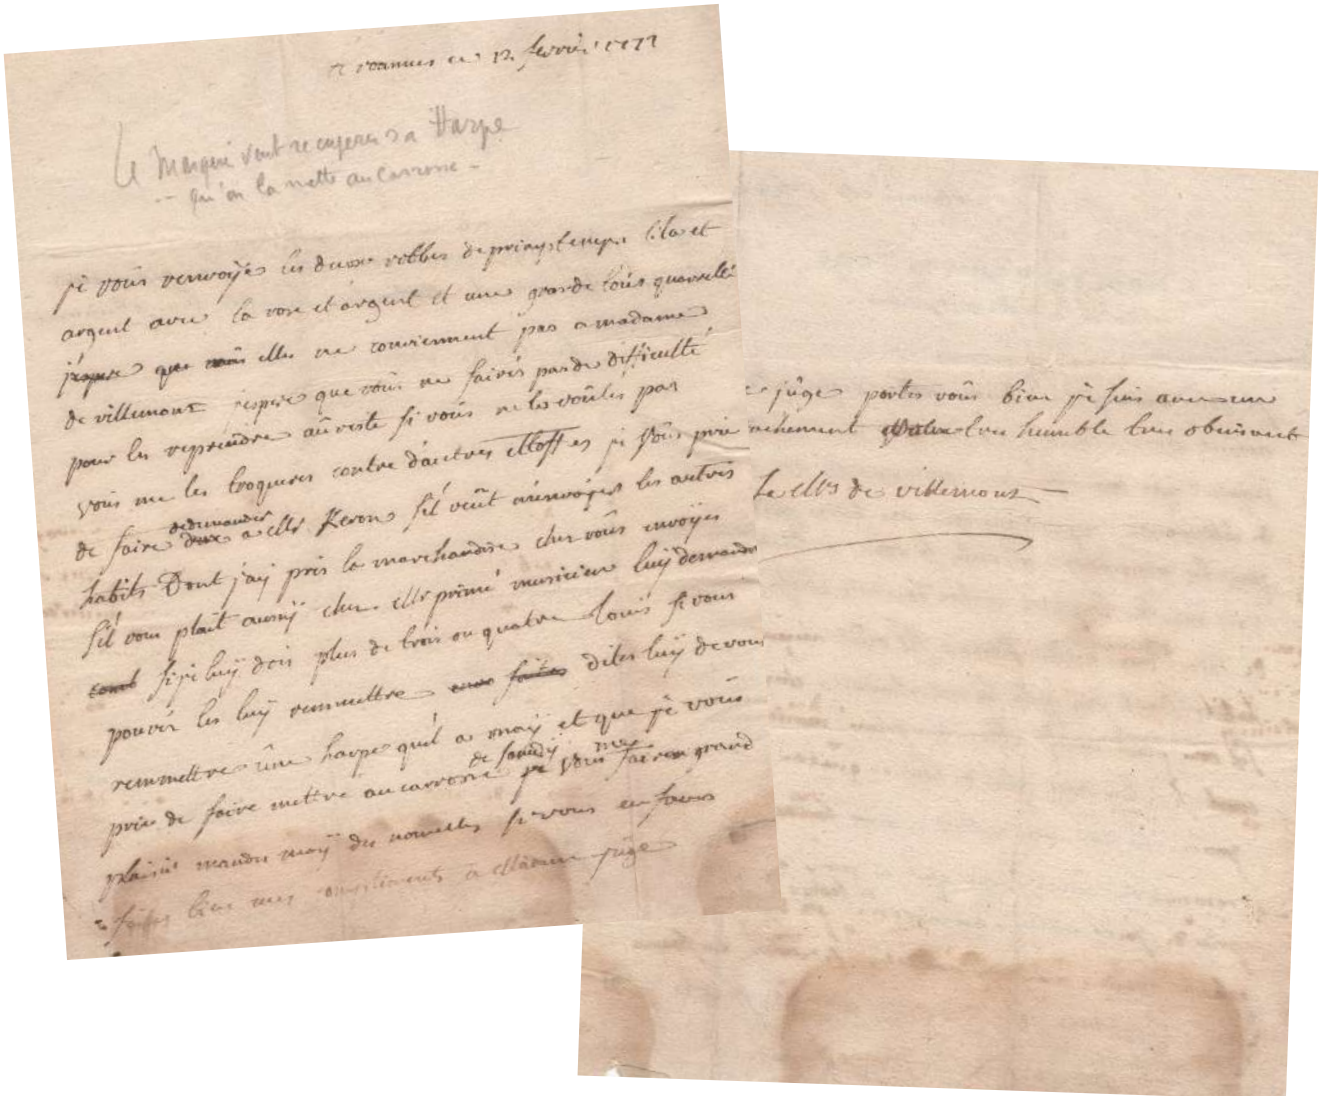 A roannes ce 12 fevrier 1777
Le Marquis veut recuperer sa Harpe
-- qu'on la mette au Carrosse -
je vous renvoÿes les deuxe robbes de printemps lila et
argent avec la rose et argent et une grande
j'espere que elles ne conviennent pas a madame
de villemont j'espere que vous ne fairés pas de difficulté
pour les reprendre aureste si vous ne les voulés pas
vous me les troquerés contre dautres ettoffes je vous prie
de faire demander a Mr Keron sil veut menvoÿer les autres
habits Dont jaÿ pris la marchandise chez vous envoÿés
sil vous plait aussÿ chez Mr primé musicien luÿ demander
comb si je luÿ dois plus de trois ou quatre Louis si vous
pouvés les luÿ remmettre faites dites luÿ de vous
remmettre une harpe quil a a moÿ et que je vous
prie de faire mettre au carrosse de samdÿ je vous me faire grand
plaisir mandés moÿ des nouvelles si vous en savés
faites bien mes compliments a Madame juge
juge portés vous bien je suis avec un
attachement Votre tres humble tres obeissant
Le Mis de villemont